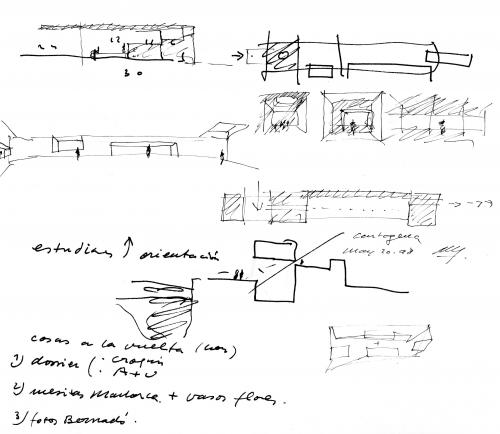 estudiar ↑ orientación
cartagena
may 20.98
cosas a la vuelta
1) dossier ( : croquis
: A+U
2) mesitas Mallorca + vasos flores.
3) fotos Bernadó.